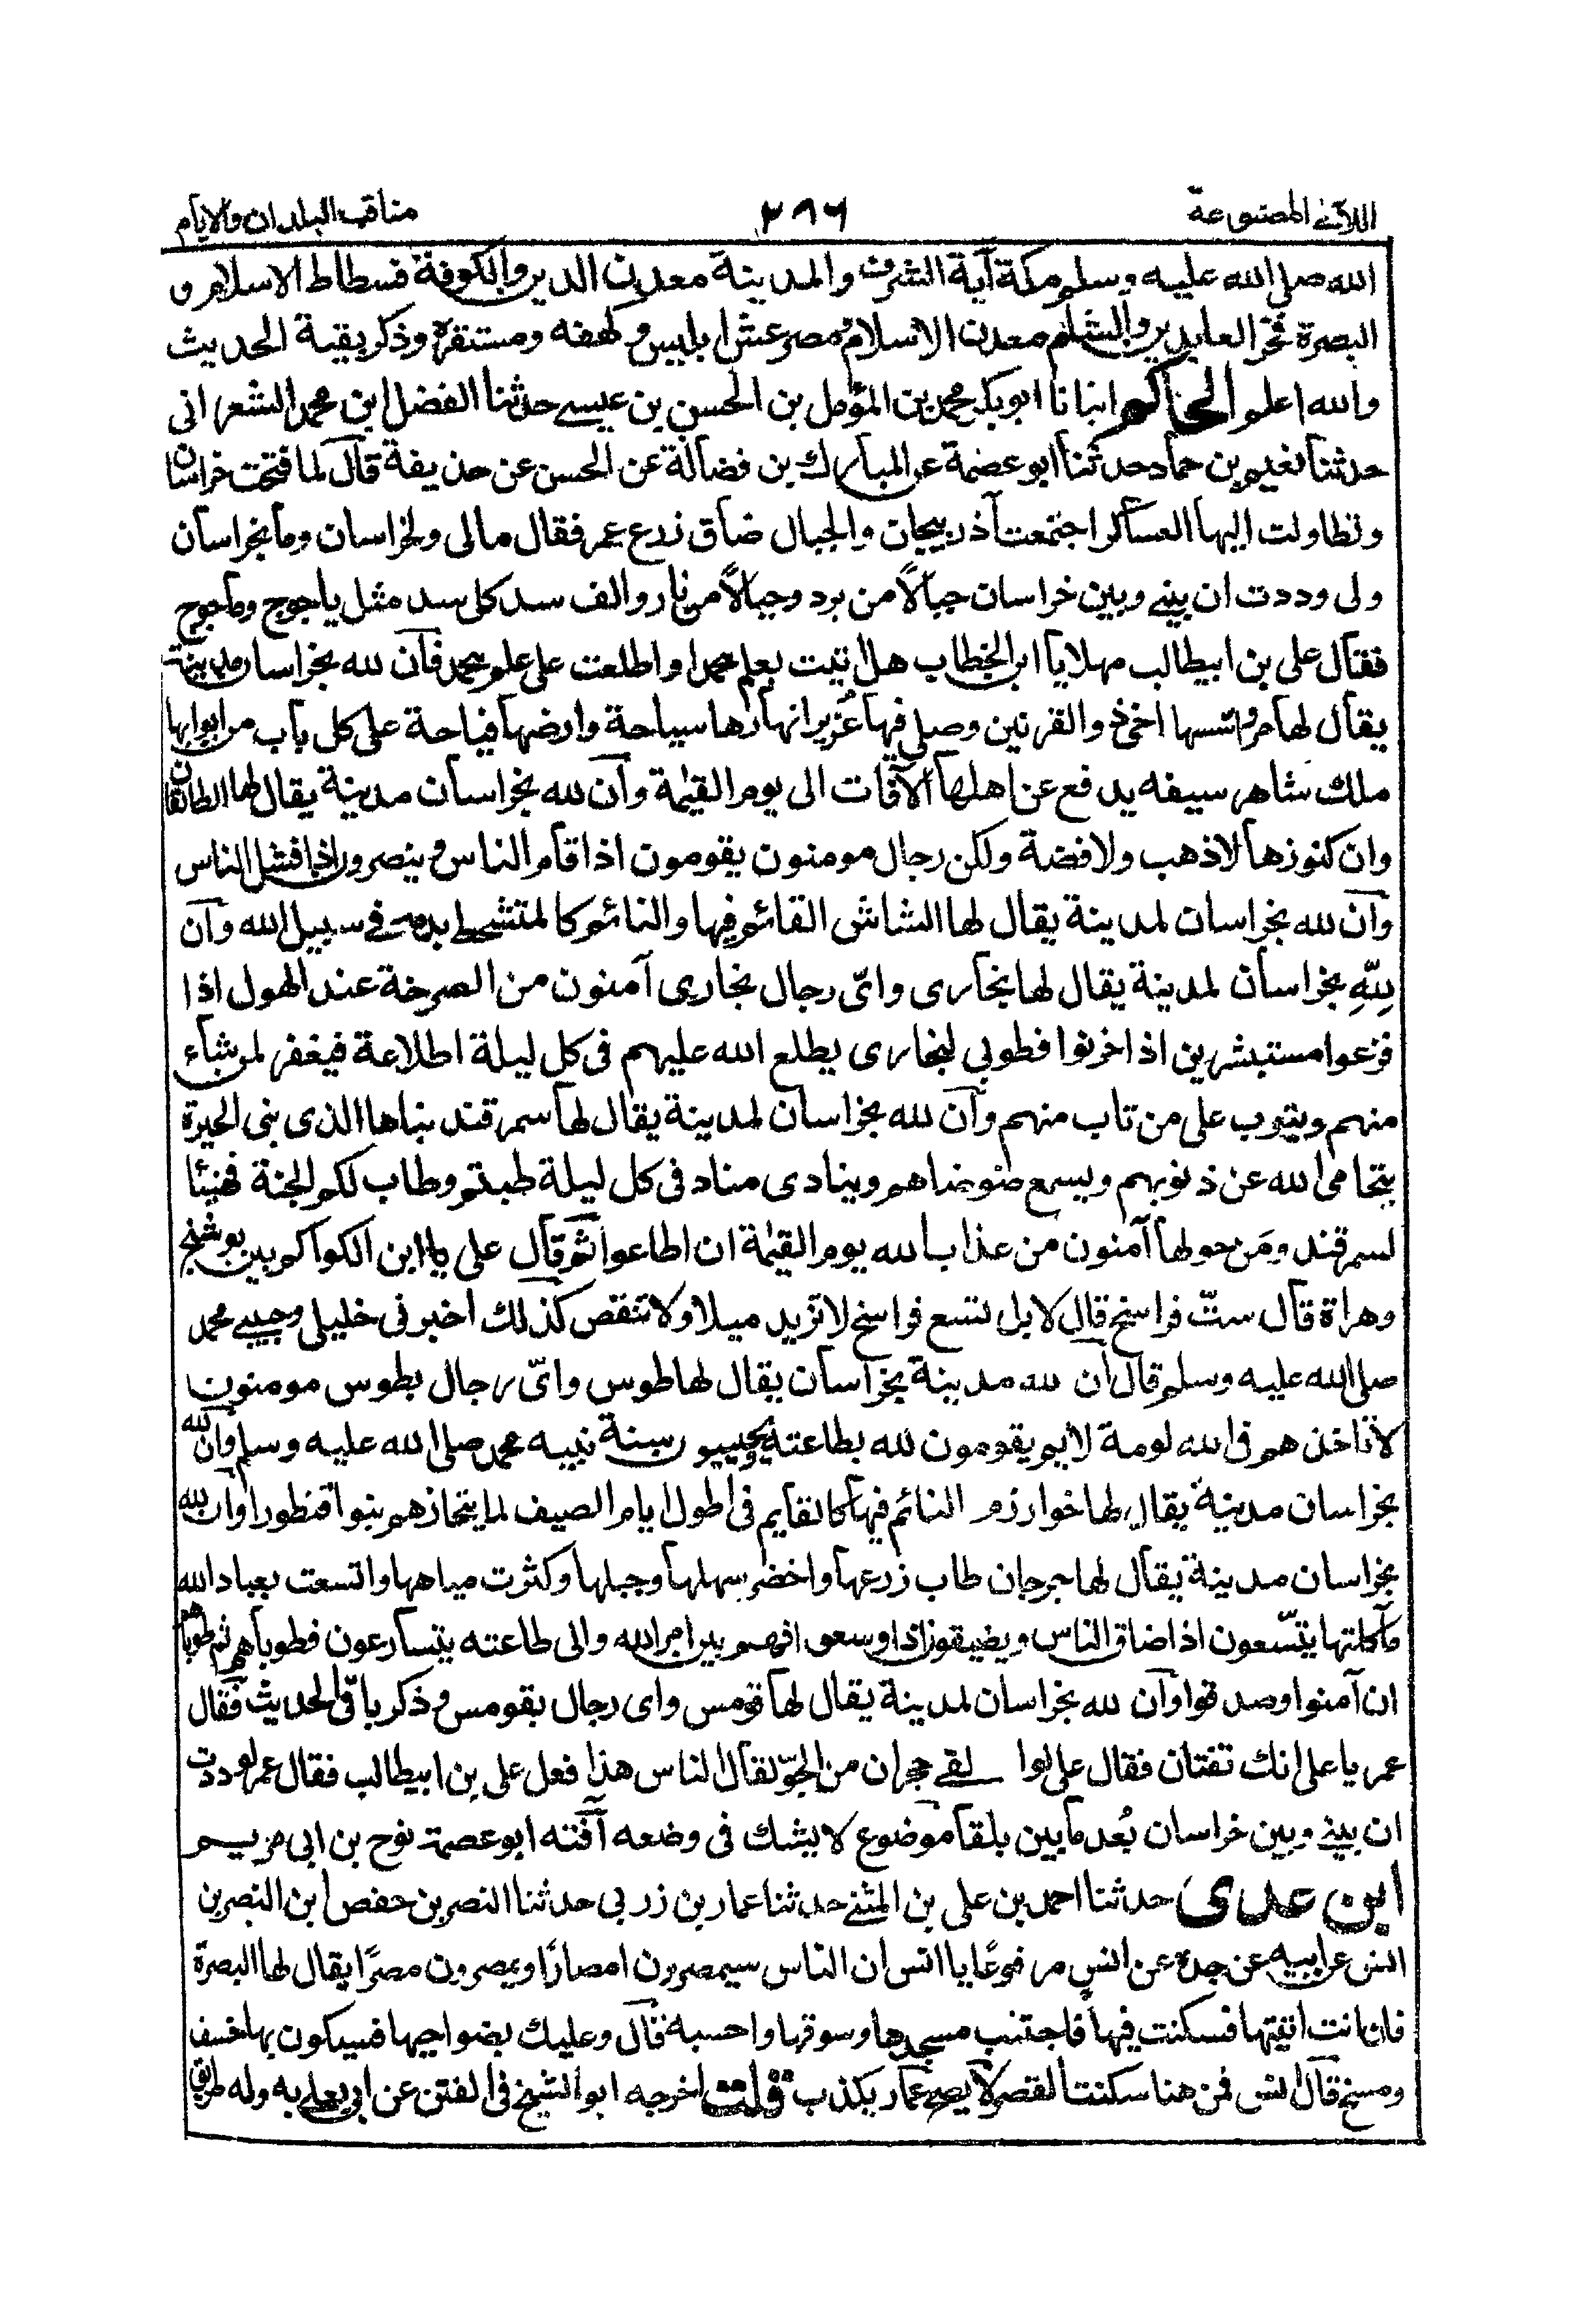 اللآلئ المصنوعة
٢٩٦
مناقب البلدان والايام
الله صلى الله عليه وسلم مكة آية الشرف والمدينة معدن الدين والكوفة فسطاط الاسلام و
البصرة فخر العابدين والشام معدن الاسلام ومصر عش ابليس وكهفه ومستقره وذكر بقية الحديث
والله اعلم الحاكم انبانا ابو بكر محمد بن المؤمل بن الحسن بن عيسى حدثنا الفضل ابن محمد الشعرانى
حدثنا نعيم بن حماد حدثنا ابو عصمة عن المبارك بن فضالة عن الحسن عن حذيفة قال لما فتحت خراسان
وتطاولت اليها العساكر اجتمعت آذربيجان والجبال ضاق ذرع عمر فقال مالى ولخراسان وما بخراسان
ولى وددت ان بينى وبين خراسان جبالاً من برد وجبالاً من نار والف سد كل سد مثل ياجوج وماجوج
فقال على بن ابيطالب مهلا يا ابن الخطاب هل اتيت بعلم محمد او اطلعت على علم محمد فان لله بخراسان مدينة
يقال لها مرو اسسها اخى ذو القرنين وصلى فيها عزير انهارها سياحة وارضها فياحة على كل باب من ابوابها
ملك شاهر سيفه يدفع عن اهلها الآفات الى يوم القيمة وان لله بخراسان مدينة يقال لها الطالقان
وان كنوزها لا ذهب ولا فضة ولكن رجال مومنون يقومون اذا قام الناس وينصرون اذا فشل الناس
وان لله بخراسان لمدينة يقال لها الشاش القائم فيها والنائم كالمتشحط بدمه فى سبيل الله وان
لله بخراسان لمدينة يقال لها بخارى واىّ رجال بخارى آمنون من الصرخة عند الهول اذا
فزعوا مستبشرين اذا حزنوا فطوبى لبخارى يطلع الله عليهم فى كل ليلة اطلاعة فيغفر لمن شاء
منهم ويتوب على من تاب منهم وان لله بخراسان لمدينة يقال لها سمرقند بناها الذى بنى الحيرة
يتحامى الله عن ذنوبهم ويسمع ضوضاهم وينادى مناد فى كل ليلة طبتم وطاب لكم الجنة فهنيئا
لسمرقند ومَن حولها آمنون من عذاب الله يوم القيمة ان اطاعوا ثم قال على يا ابن الكوا كم بين بوشنج
وهراة قال ستّ فراسخ قال لا بل تسع فراسخ لا تزيد ميلا ولا تنقص كذلك اخبرنى خليلى وحبيبى محمد
صلى الله عليه وسلم قال ان لله مدينة بخراسان يقال لها طوس واىّ رجال بطوس مومنون
لا تاخذهم فى الله لومة لايم يقومون لله بطاعته ويحييون سنة نبيه محمد صلى الله عليه وسلم وان لله
بخراسان مدينة يقال لها خوارزم النائم فيها كالقايم فى اطول ايام الصيف لما يتحازهم بنوا قنطورا وان لله
بخراسان مدينة يقال لها جرجان طاب زرعها واخضر سهلها وجبلها وكثرت مياهها واتسعت بعباد الله
ماكلتها يتّسعون اذا ضاق الناس ويضيقون اذا وسعوا فهم بين امر الله والى طاعته يتسارعون فطوباهم ثم طوباهم
ان آمنوا وصدقوا وان لله بخراسان لمدينة يقال لها قومس واى رجال بقومس وذكر باقى الحديث فقال
عمر يا على انك تفتان فقال على لوا لقى حجران من الجوّ لقال الناس هذا فعل على بن ابيطالب فقال عمر لوددت
ان بينى وبين خراسان بُعد ما بين بلقا موضوع لا يشك فى وضعه آفته ابو عصمة نوح بن ابى مريم
ابن عدى حدثنا احمد بن على بن المثنى حدثنا عمار بن زربى حدثنا النضر بن حفص ابن النضر بن
انس عن ابيه عن جده عن انس مرفوعًا يا انس ان الناس سيمصرون امصارًا ويمصرون مصرًا يقال لها البصرة
فان انت اتيتها فسكنت فيها فاجتنب مسجدها وسوقها واحسبه قال وعليك بضواحيها فسيكون بها خسف
ومسخ قال انس فمن هنا سكنت القصر لا يصح عمار يكذب قلت اخرجه ابو الشيخ فى الفتن عن ابى يعلى به وله طريق